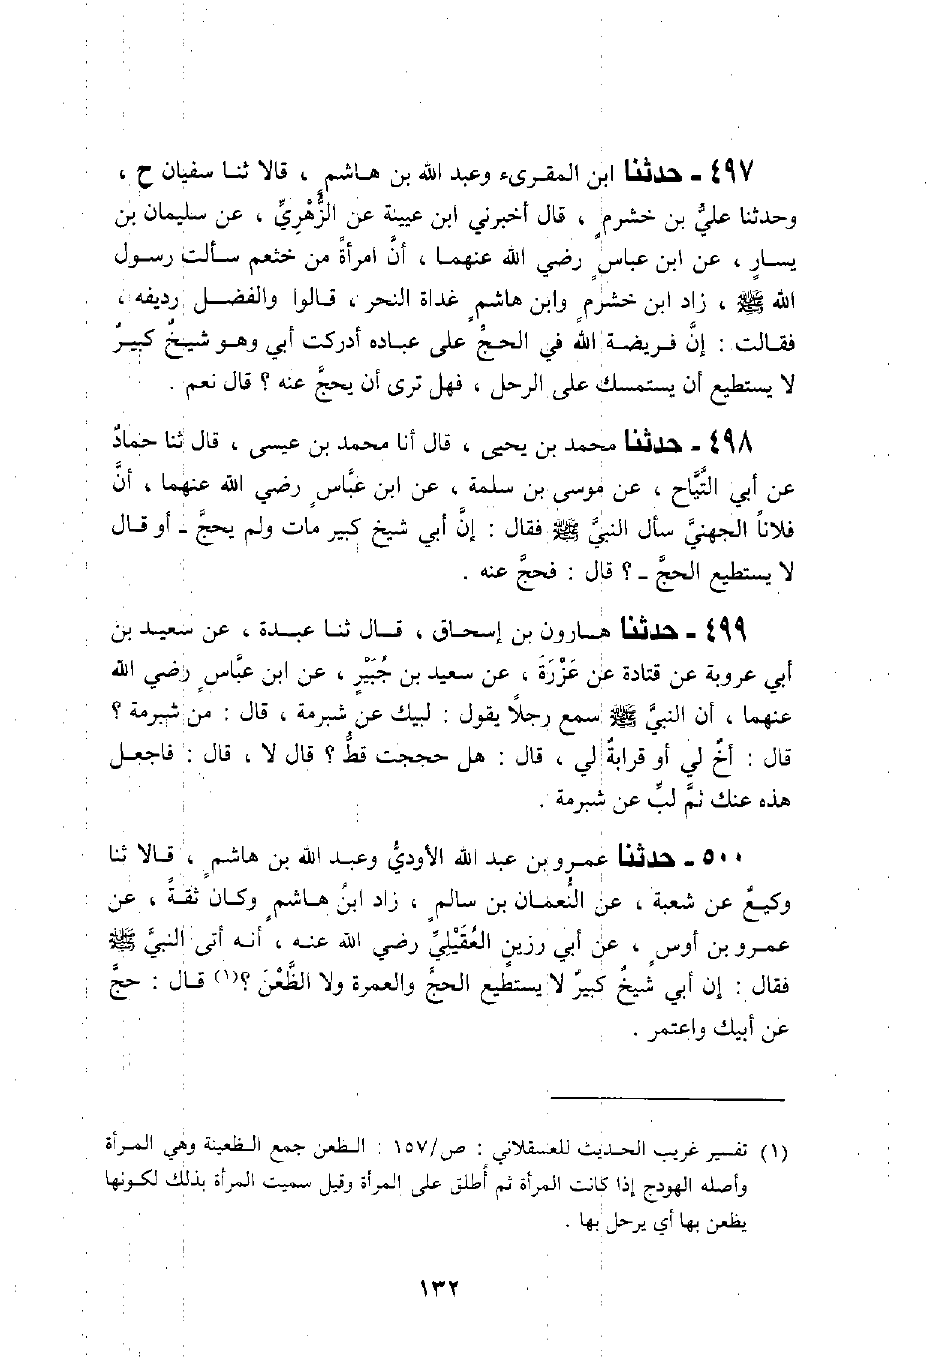 ٤٩٧ ـ حدثنا ابن المقرىء وعبد الله بن هاشمٍ ، قالا ثنا سفيان ح ،
وحدثنا عليُّ بن خشرمٍ ، قال أخبرني ابن عيينة عن الزُّهْرِيِّ ، عن سليمان بن
يسارٍ ، عن ابن عباسٍ رضي الله عنهما ، أنَّ امرأةً من خثعم سألت رسول
الله ﷺ ، زاد ابن خشرمٍ وابن هاشمٍ غداة النحر ، قالوا والفضل رديفه ،
فقالت : إنَّ فريضة الله في الحجِّ على عباده أدركت أبي وهو شيخٌ كبيرٌ
لا يستطيع أن يستمسك على الرحل ، فهل ترى أن يحجَّ عنه ؟ قال نعم .
٤٩٨ ـ حدثنا محمد بن يحيى ، قال أنا محمد بن عيسى ، قال ثنا حمادٌ
عن أبي التَّيَّاح ، عن موسى بن سلمة ، عن ابن عبَّاسٍ رضي الله عنهما ، أنَّ
فلاناً الجهنيَّ سأل النبيَّ ﷺ فقال : إنَّ أبي شيخ كبير مات ولم يحجَّ ـ أو قال
لا يستطيع الحجَّ ـ ؟ قال : فحجَّ عنه .
٤٩٩ ـ حدثنا هارون بن إسحاق ، قال ثنا عبدة ، عن سعيد بن
أبي عروبة عن قتادة عن عَزْرَةَ ، عن سعيد بن جُبَيْرٍ ، عن ابن عبَّاسٍ رضي الله
عنهما ، أن النبيَّ ﷺ سمع رجلاً يقول : لبيك عن شبرمة ، قال : من شبرمة ؟
قال : أخٌ لي أو قرابةٌ لي ، قال : هل حججت قطُّ ؟ قال لا ، قال : فاجعل
هذه عنك ثمَّ لبِّ عن شبرمة .
٥٠٠ ـ حدثنا عمرو بن عبد الله الأوديُّ وعبد الله بن هاشمٍ ، قالا ثنا
وكيعٌ عن شعبة ، عن النُّعمان بن سالمٍ ، زاد ابنُ هاشمٍ وكان ثقةً ، عن
عمرو بن أوسٍ ، عن أبي رزينٍ العُقَيْليِّ رضي الله عنه ، أنه أتى النبيَّ ﷺ
فقال : إن أبي شيخٌ كبيرٌ لا يستطيع الحجَّ والعمرة ولا الظَّعْنَ ؟(١) قال : حجَّ
عن أبيك واعتمر .
(١) تفسير غريب الحديث للعسقلاني : ص/١٥٧ : الظعن جمع الظعينة وهي المرأة
وأصله الهودج إذا كانت المرأة ثم أُطلق على المرأة وقيل سميت المرأة بذلك لكونها
يظعن بها أي يرحل بها .
١٣٢